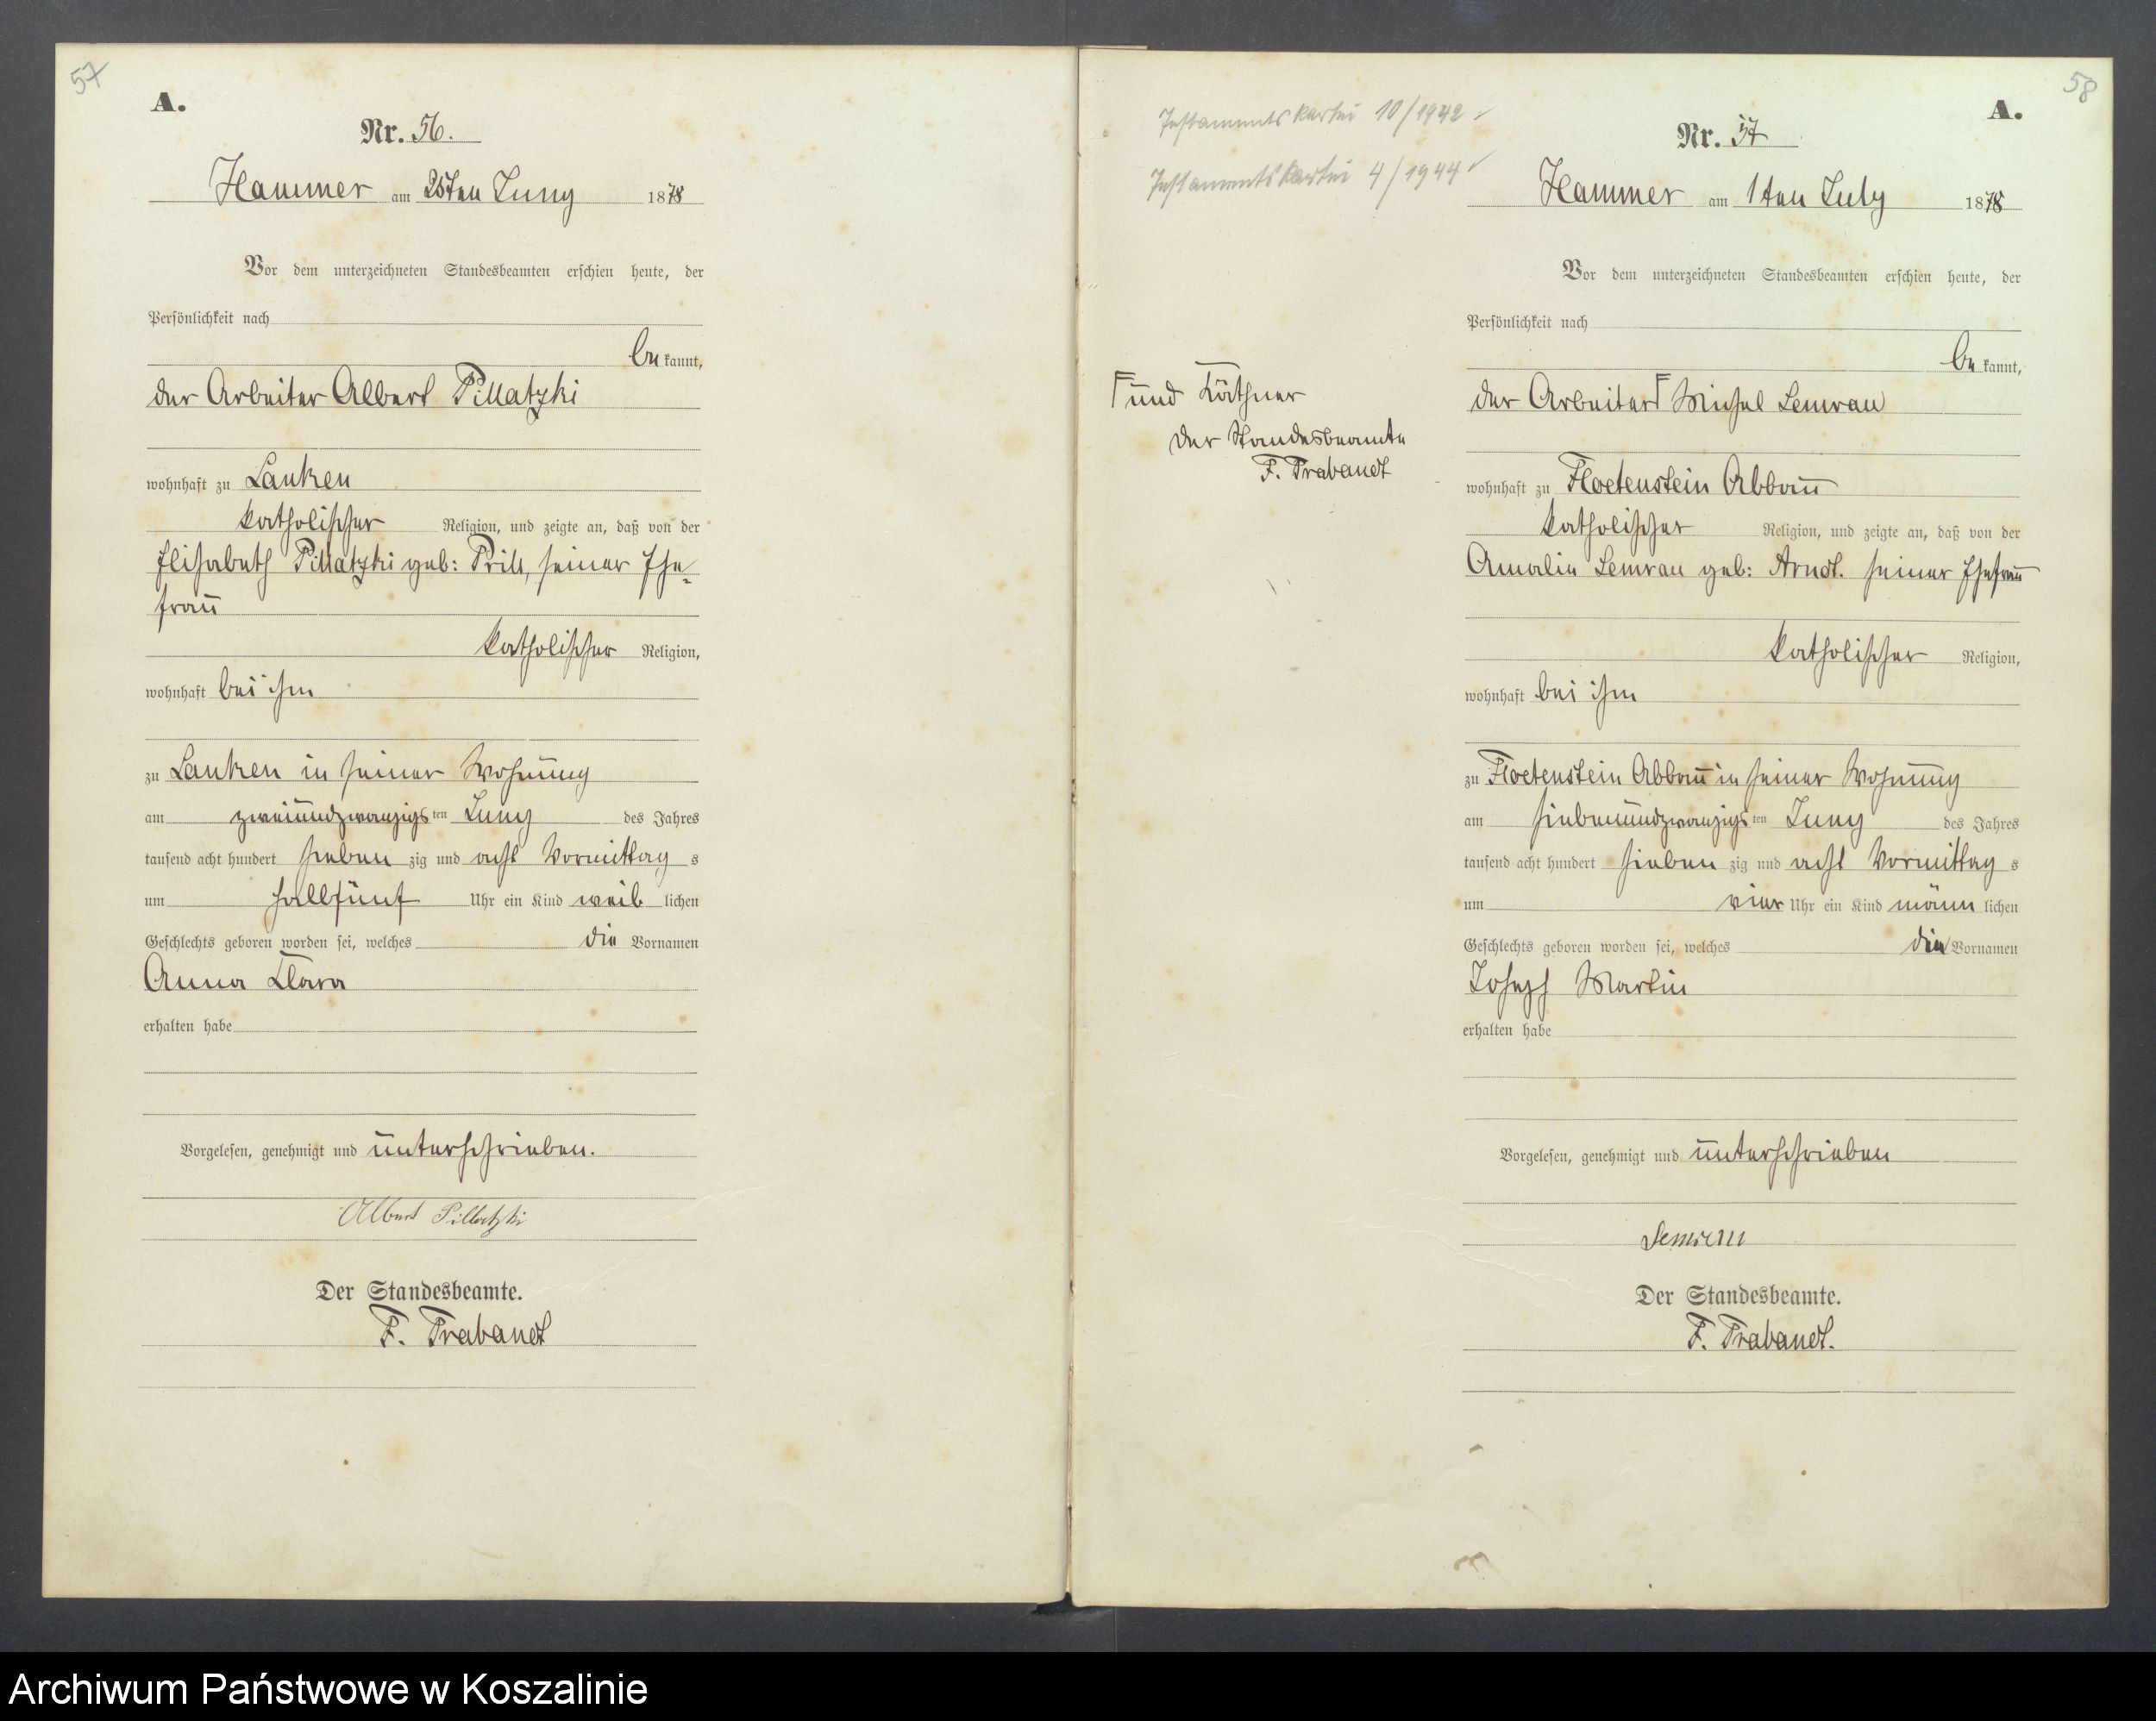 57
A.
Nr. 56.
Hammer am 25ten Juny 1878
Vor dem unterzeichneten Standesbeamten erschien heute, der
Persönlichkeit nach
be kannt,
der Arbeiter Albert Pillatzki
wohnhaft zu Lanken
katholischer Religion, und zeigte an, daß von der
Elisabeth Pillatzki geb: Prill, seiner Ehe-
frau
katholischer Religion,
wohnhaft bei ihm
zu Lanken in seiner Wohnung
am zweiundzwanzigs ten Juny des Jahres
tausend acht hundert sieben zig und acht Vormittag s
um halbfünf Uhr ein Kind weib lichen
Geschlechts geboren worden sei, welches die Vornamen
Anna Klara
erhalten habe
Vorgelesen, genehmigt und unterschrieben.
Albert Pillatzki
Der Standesbeamte.
F. Trabandt
58
A.
Testamentskartei 10/1942
Testamentskartei 4/1944
Nr. 57
Hammer am 1ten July 1878
Vor dem unterzeichneten Standesbeamten erschien heute, der
Persönlichkeit nach
be kannt,
und Käthner
der Standesbeamte
F. Trabandt
der Arbeiter Michel Semrau
wohnhaft zu Floetenstein Abbau
katholischer Religion, und zeigte an, daß von der
Amalie Semrau geb: Arndt. seiner Ehefrau
katholischer Religion,
wohnhaft bei ihm
zu Floetenstein Abbau in seiner Wohnung
am siebenundzwanzigs ten Juny des Jahres
tausend acht hundert sieben zig und acht Vormittag s
um vier Uhr ein Kind männ lichen
Geschlechts geboren worden sei, welches die Vornamen
Joseph Martin
erhalten habe
Vorgelesen, genehmigt und unterschrieben
Semrau
Der Standesbeamte.
F. Trabandt.
Archiwum Państwowe w Koszalinie